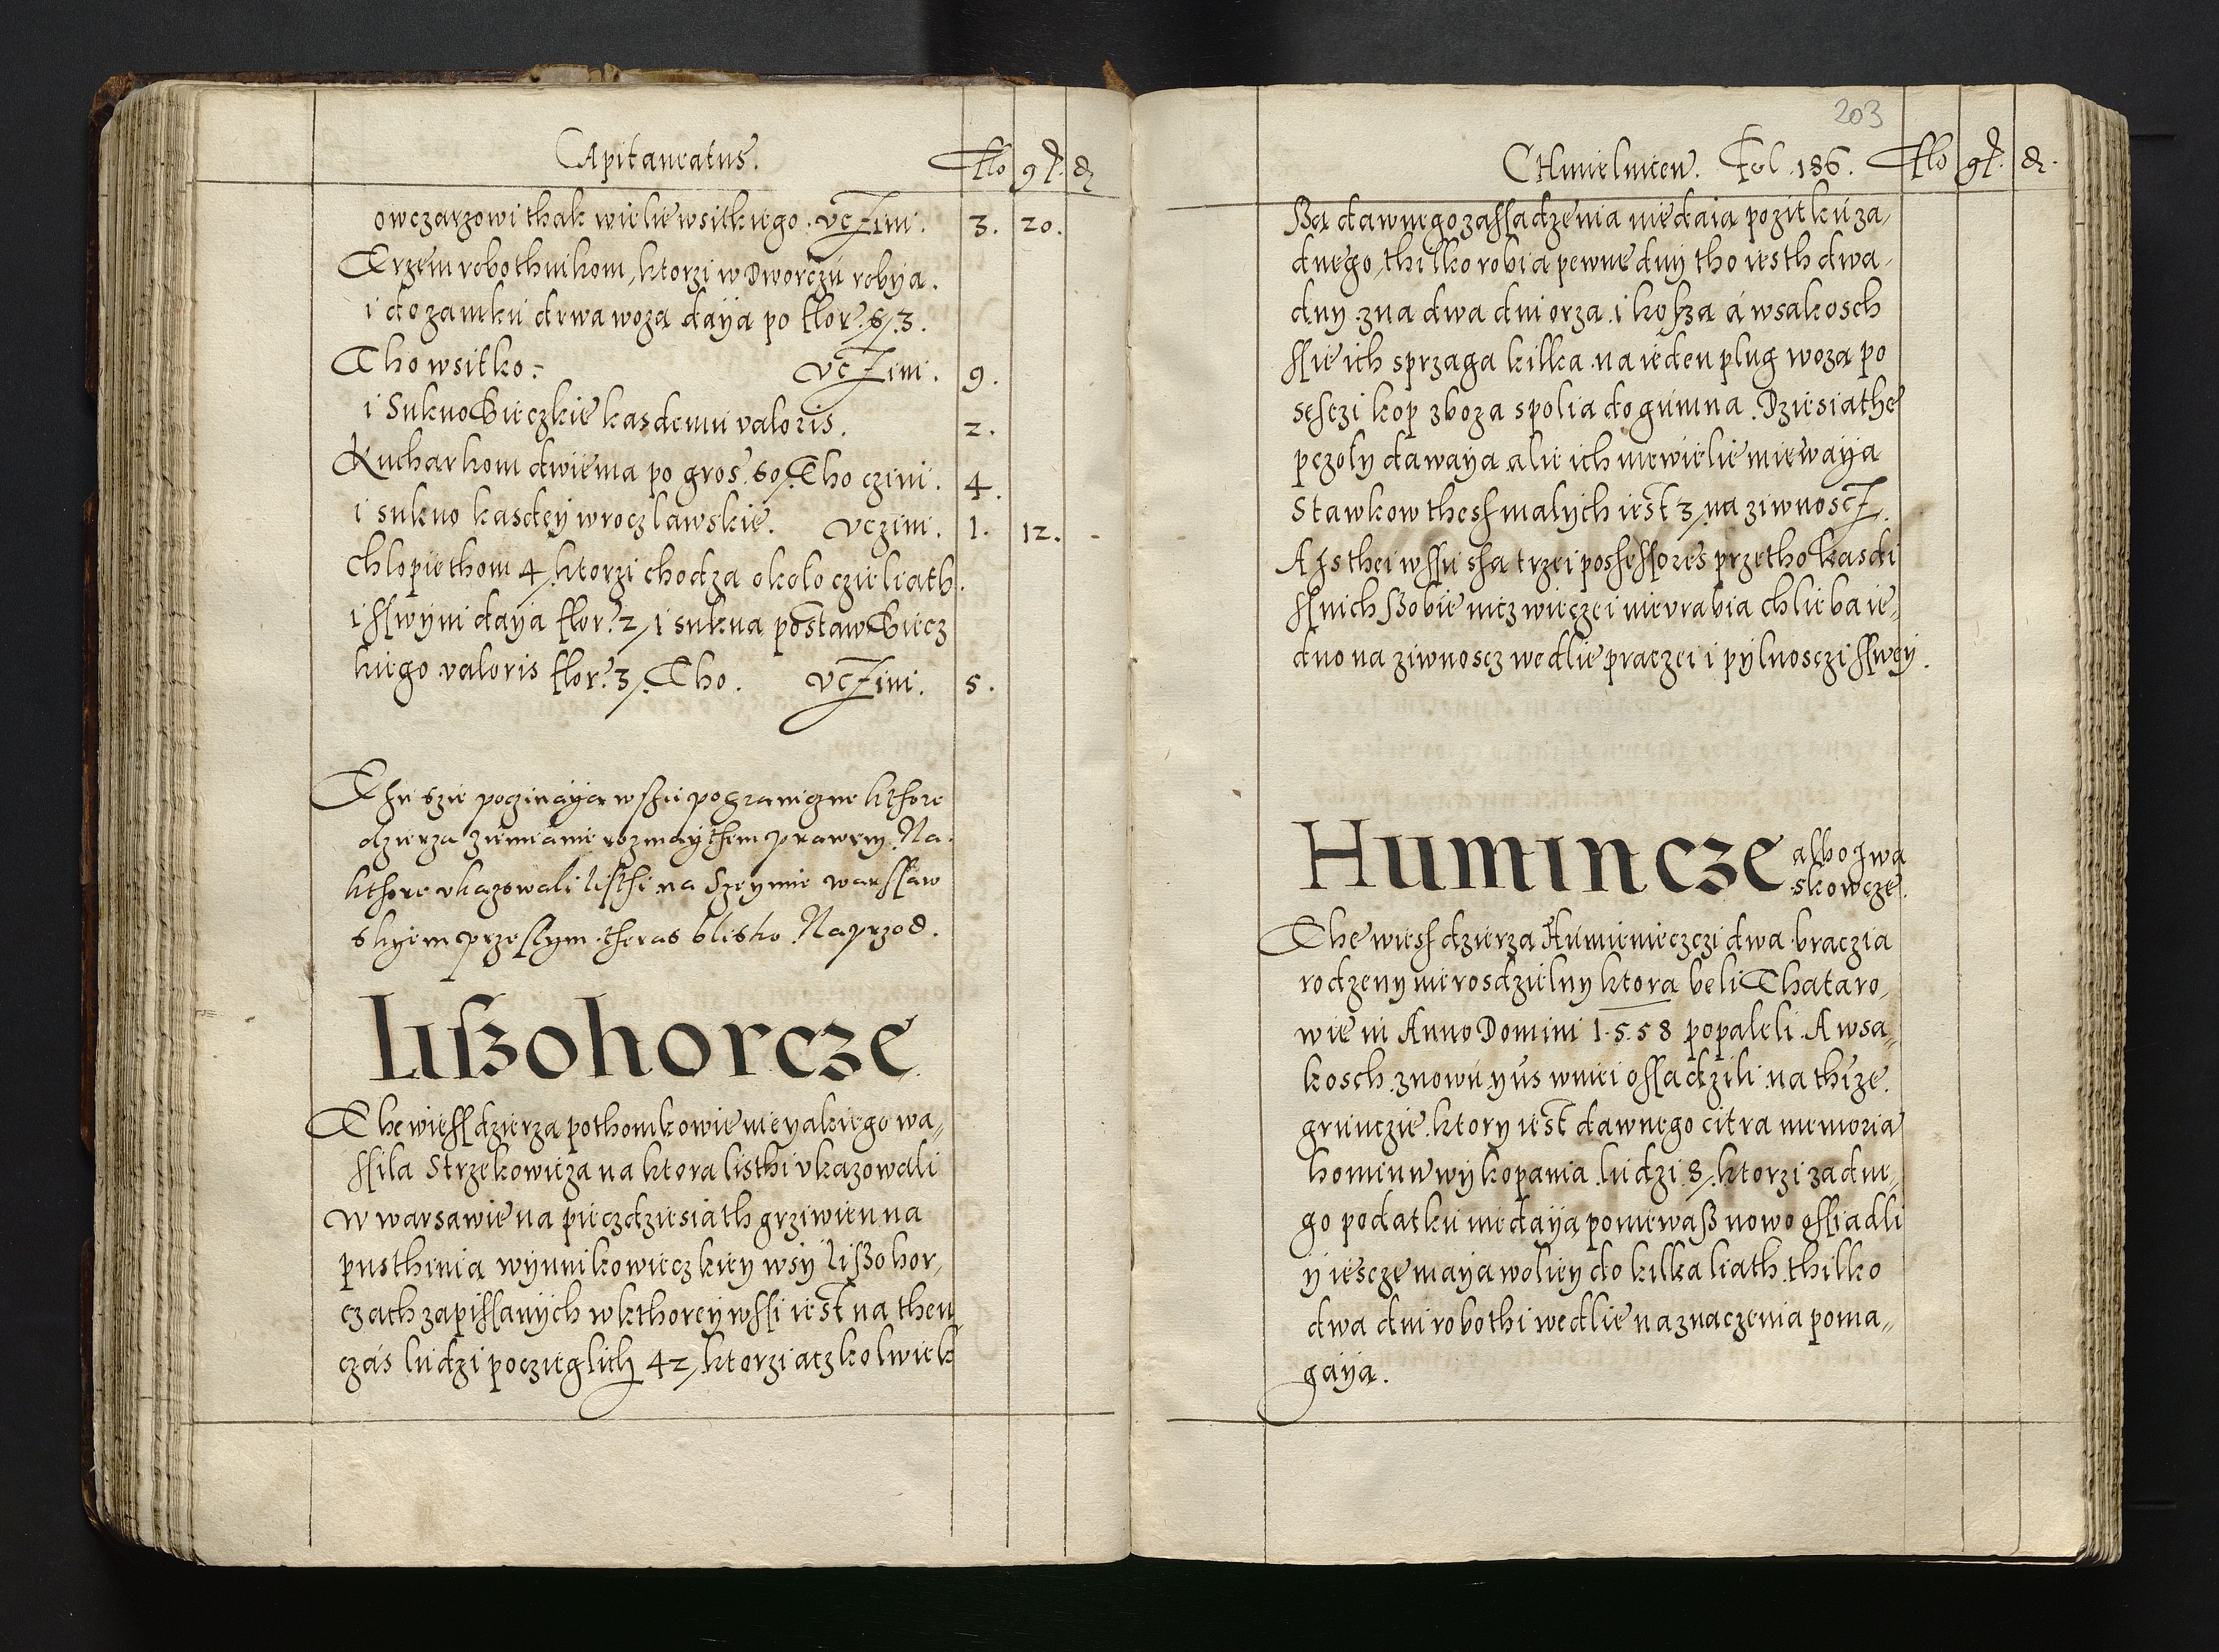 Capitaneatus. Flo gr. d
owczarzowi thak wielie wsitkiego. vczini. 3. 20.
Trzem robothnikom, ktorzi w Dworczu robya.
i do zamku drwa woza daya po flor. 3.
Tho wsitko. vczini. 9.
i Sukno Bieczkie kasdemu valoris. 2.
Kucharkom dwiema po gros. 60, Tho czini. 4.
i sukno kasdey wroczlawskie. vczini. 1. 12.
Chlopiethom 4, ktorzi chodza okolo czieliath.
i sswyni daya flor. 2, i sukna postaw Biecz
kiego valoris flor. 3, Tho. vczini. 5.
Thu szie poczinaya wszii pograniczne kthore
dzierza ziemianie rozmaythem prawem. Na
kthore vkazowali listhi na Szeymie warssaw
skyem przeslym theras blisko. Naprzod.
Lißohorcze
The wiess dzierza pothomkowie nieyakiego wa„
ssila Strzekowicza na ktora listhi vkazowali
w warsawie na pieczdziesiath grziwien na
pusthinia wynnikowieczkiey wsy lißohor,
czach zapissanych w kthorey wssi iest na then
czás ludzi poczieglich 42, ktorzi aczkolwiek
203
CHmielnicen. Fol. 186. Flo gr. d.
ßa dawnego zassadzenia niedaia pozitku za,
dnego, thilko robia pewne dny tho iesth dwa
dny zna dwa dni orza i koßza á wsakosch
ssie ich sprzaga kilka na ieden plug woza po
sesczi kop zboza spolia do gumna. Dziesiathe
pczoly dawaya alie ich niewielie miewaya
Stawkow thesz malych iest 3, na ziwnoscz.
A Is thei wssi ssa trzei possessores przetho kasdi
ssnich ßobie nicz wieczei nievrabia chlieba ie„
dno na ziwnoscz wedlie praczei i pylnosczi sswey.
Humincze albo Iwa
skowcze.
The wiesz dzierza Humienieczczi dwa braczia
rodzeny nierosdzielny ktora beli Thataro,
wie in Anno Domini 1558 popaleli. A wsa„
kosch znowu yus wniei ossadzili na thize
grunczie. ktory iest dawnego citra memoria
hominu wykopania ludzi 8, ktorzi zadne„
go podatku niedaya poniewaß nowo ossiadli
y iescze maya woliey do kilka liath. thilko
dwa dni robothi wedlie naznaczenia poma„
gaya.